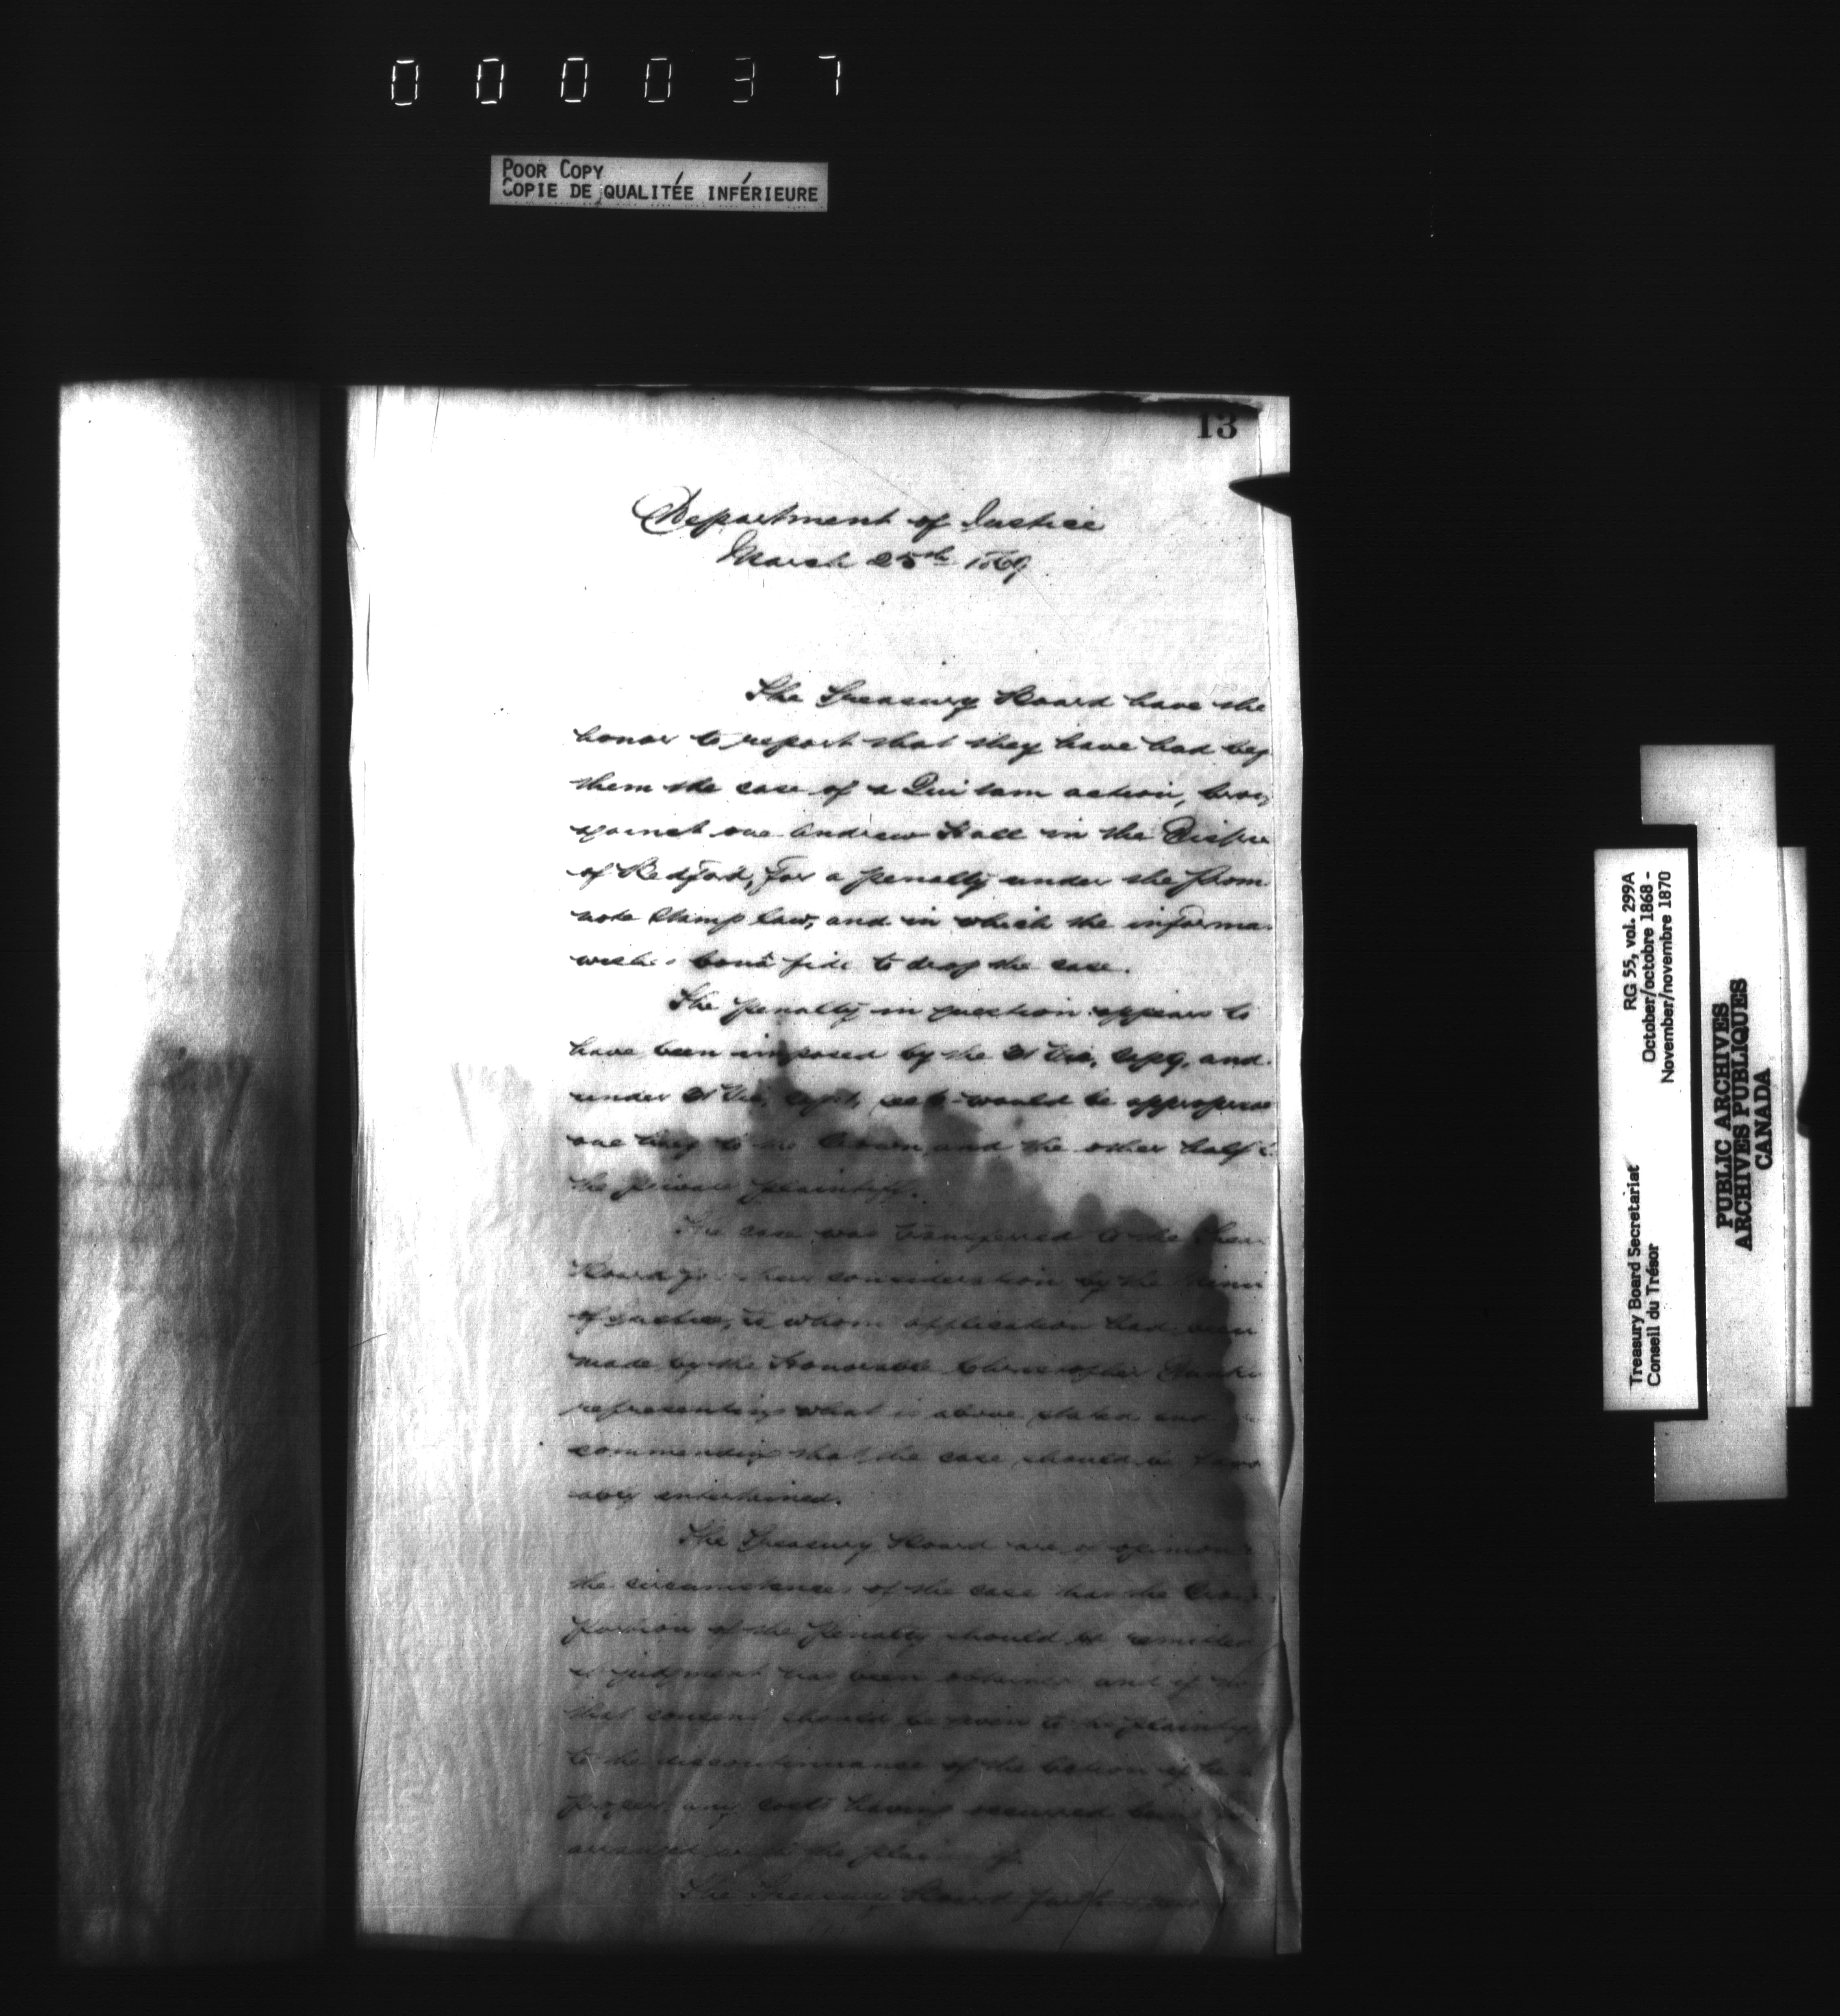 000037
POOR COPY
COPIE DE QUALITÉE INFÉRIEURE
13
Department of Justice
March 25th 1869
The Treasury Board have the
honor to report that they have had bef
them the case of a Qui tam action, brou
against one Andrew Hall in the Distri
of Bedford, for a penalty under the prom
note Stamp law, and in which the informa
wishes bonâ fide to drop the case.
The penalty in question appears to
have been imposed by the 31 Vic, cap 9, and
under 31 Vic, cap would be appropriat
one half to the Crown and the other half t
the private plaintiff.
The case was transferred to the Trea
Board for their consideration by the Mini
of Justice, to whom application had been
made by the Honorable Christopher Dunki
representing what is above stated and re
commending that the case should be favo
ably entertained.
The Treasury Board are of opinion
the circumstances of the case that the Crow
portion of the penalty should be remitted
if judgment has been obtained and if no
that consent should be given to the plaintiff
to the discontinuance of the action if he
proper, any costs having occurred being
arranged with the plaintiff.
The Treasury Board further
RG 55, vol. 299A
October/octobre 1868 -
November/novembre 1870
Treasury Board Secretariat
Conseil du Trésor
PUBLIC ARCHIVES
ARCHIVES PUBLIQUES
CANADA